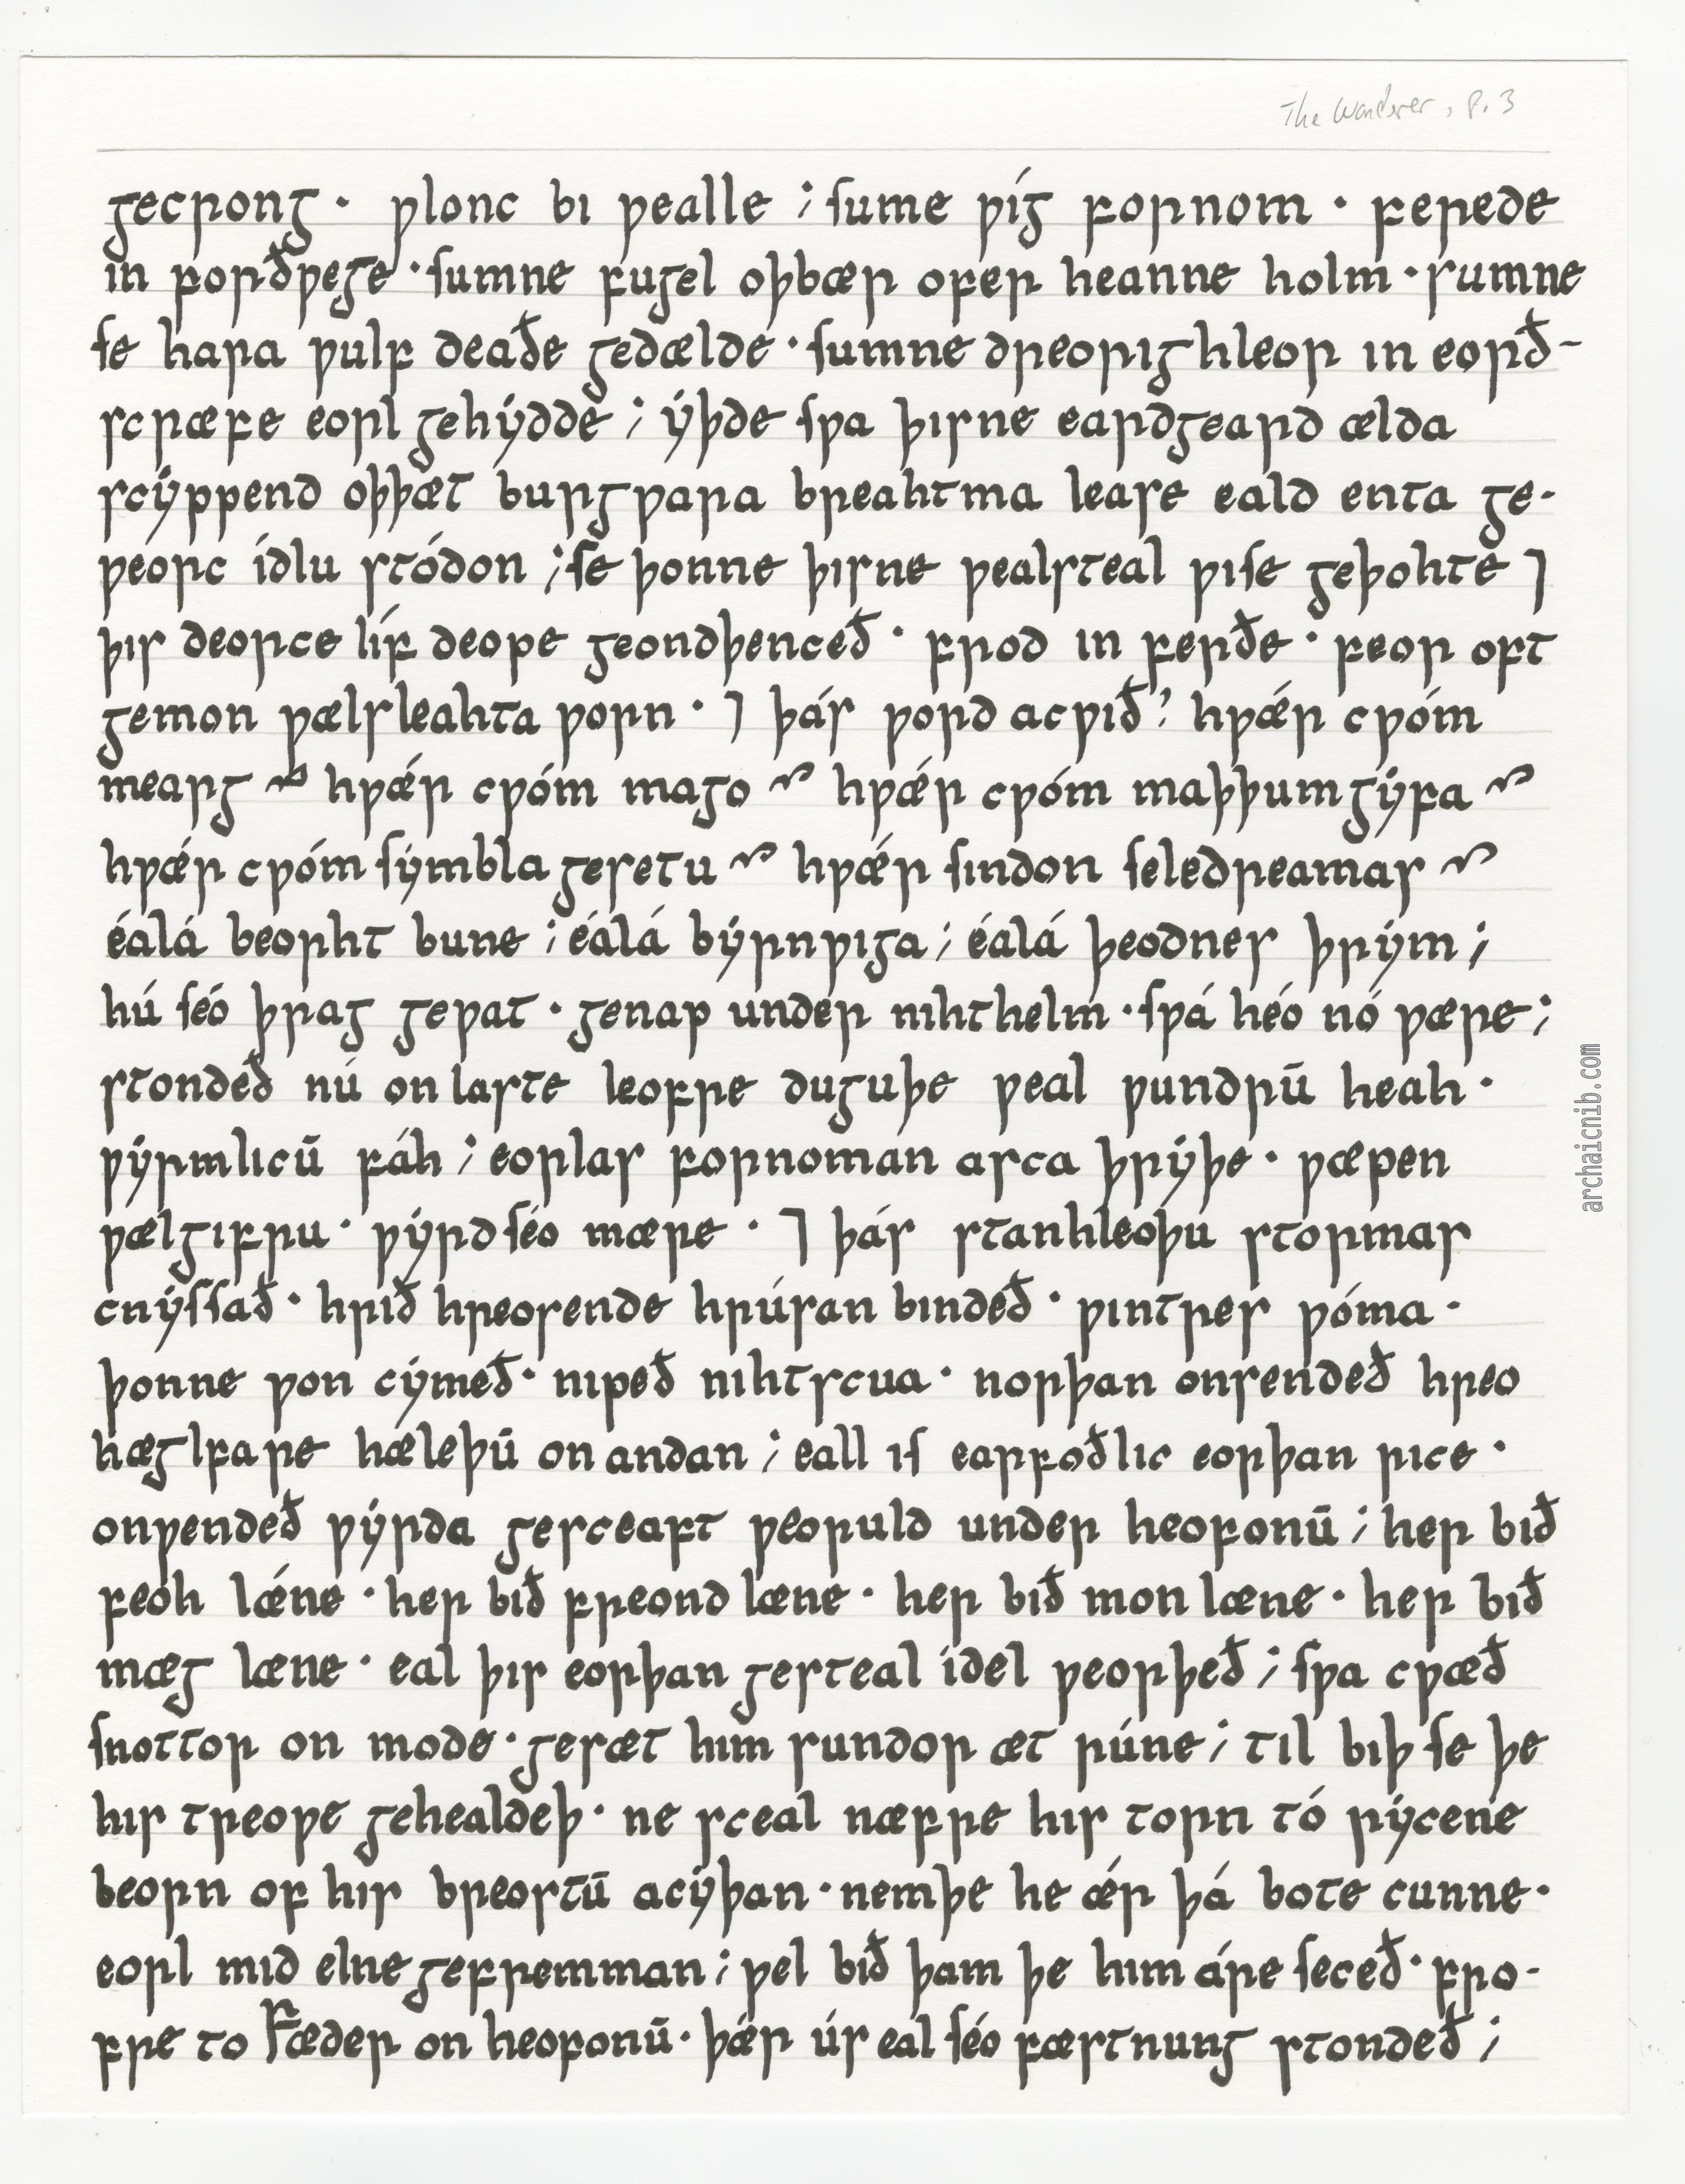 The Wanderer, p. 3
gecrong · ƿlonc bi ƿealle ; ſume ƿíg fornom · ferede
in forðƿege · ſumne fugel oþbær ofer heanne holm · sumne
ſe hara ƿulf deaðe gedælde · ſumne dreorighleor in eorð-
scræfe eorl gehẏdde ; ẏþde ſƿa þisne eardgeard ælda
scẏppend oþþæt burgƿara breahtma lease eald enta ge-
ƿeorc ídlu stódon ; ſe þonne þisne ƿealsteal ƿiſe geþohte ⁊
þis deorce líf deope geondþenceð · frod in ferðe · feor oft
gemon ƿælsleahta ƿorn · ⁊ þás ƿord acƿið ? hƿǽr cƿóm
mearg ? hƿǽr cƿóm mago ? hƿǽr cƿóm maþþumgẏfa ?
hƿǽr cƿóm ſẏmbla gesetu ? hƿǽr ſindon ſeledreamas ?
éalá beorht bune ; éalá bẏrnƿiga ; éalá þeodnes þrẏm ;
hú ſéo þrag geƿat · genap under nihthelm · ſƿá héo nó ƿære ;
stondeð nú on laste leofre duguþe ƿeal ƿundrū heah ·
ƿẏrmlicū fáh ; eorlas fornoman asca þrẏþe · ƿæpen
ƿælgifru · ƿẏrd ſéo mære · ⁊ þás stanhleoþu stormas
cnẏſſað · hrið hreosende hrúsan bindeð · ƿintres ƿóma ·
þonne ƿon cẏmeð · nipeð nihtscua · norþan onsendeð hreo
hæglfare hæleþū on andan ; eall iſ earfoðlic eorþan rice ·
onƿendeð ƿẏrda gesceaft ƿeoruld under heofonū ; her bið
feoh lǽne · her bið freond læne · her bið mon læne · her bið
mæg læne · eal þis eorþan gesteal idel ƿeorþeð ; ſƿa cƿæð
ſnottor on mode · gesæt him sundor æt rúne ; til biþ ſe þe
his treoƿe gehealdeþ · ne sceal næfre his torn tó rẏcene
beorn of his breostū acẏþan · nemþe he ǽr þá bote cunne ·
eorl mid elne gefremman ; ƿel bið þam þe him áre ſeceð · fro-
fre to Fæder on heofonū · þǽr ús eal ſéo fæstnung stondeð ;
archaicnib.com